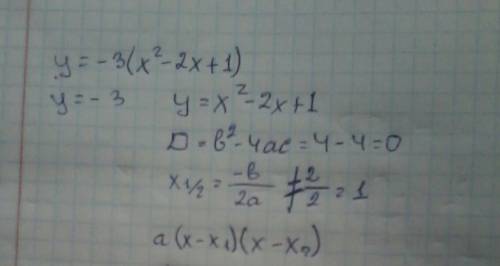 y = -3(x² - 2x + 1)
y = -3 y = x² - 2x + 1
D = b² - 4ac = 4 - 4 = 0
x₁/₂ = -b/2a = 2/2 = 1
a(x - x₁)(x - x₂)